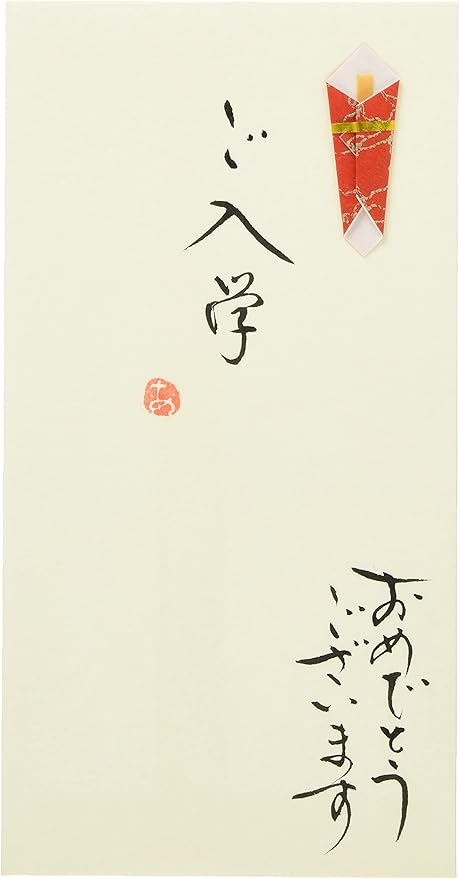 ご入学
あ
おめでとう
ございます